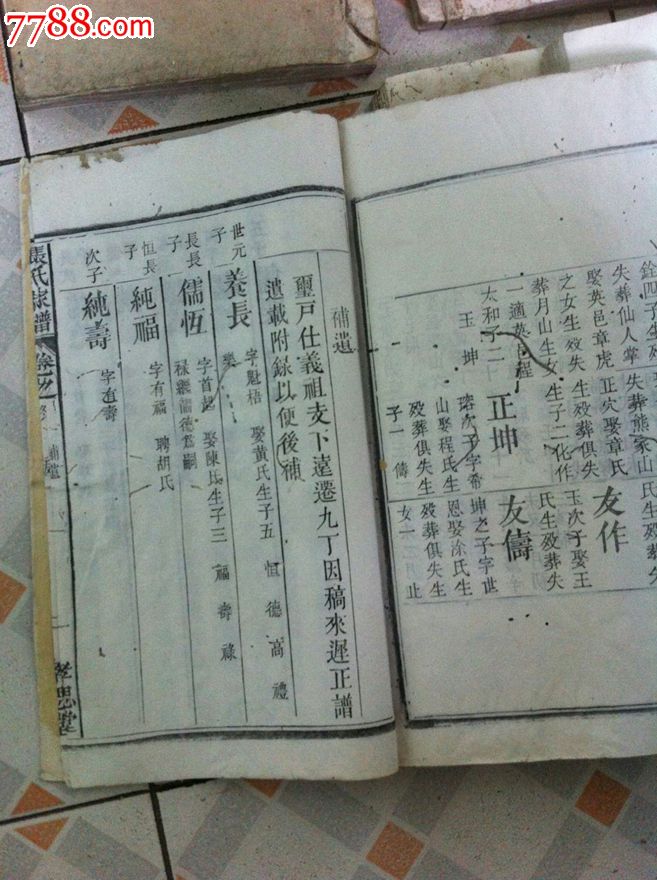 7788.com
中国收藏热线
銓四子生
失葬仙人掌
娶英邑章虎
之女生效失
葬月山生女
一適英邑程
太和子二
玉坤
失葬熊家山
正穴娶章氏
生殁葬俱失
生子二化作
正坤
瑢次子字希
山娶程氏生
殁葬俱失生
子一儔
氏生殁葬失
友作
玉次子娶王
氏生殁葬失
友儔
坤之子字世
恩娶涂氏生
殁葬俱失生
女一二月止
補遺
璽戸仕義祖支下遠遷九丁因稿來遲正譜
遺載附錄以便後補
世元
養長
字魁梧 娶黄氏生子五 恒德高禮
樂
長長子
儒恆
字首起 娶陳氏生子三 福壽祿
祿繼儒德爲嗣
恒長子
純福
字有福 聘胡氏
次子
純壽
字有壽
張氏宗譜
補遺
孝思堂